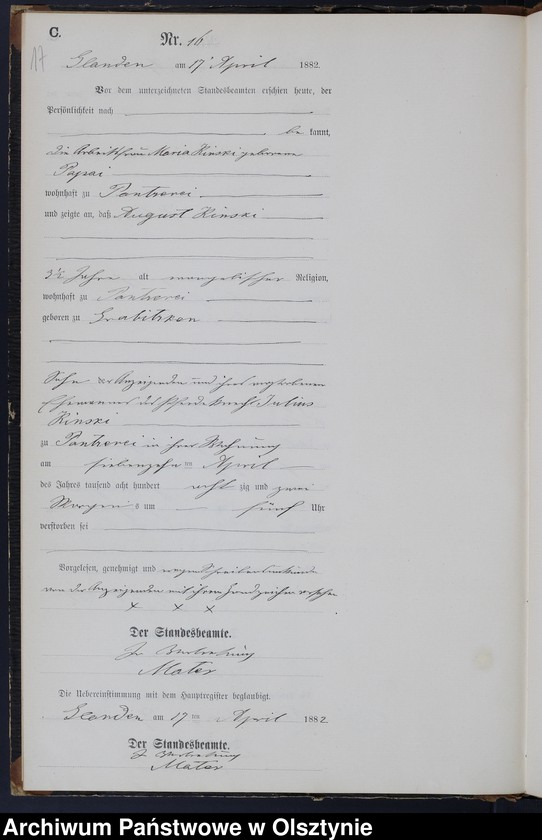 C.
Nr. 16
17
Glanden am 17 April 1882.
Vor dem unterzeichneten Standesbeamten erschien heute, der
Persönlichkeit nach
be kannt,
die Arbeitsfrau Maria Kinski geborene
Papai
wohnhaft zu
und zeigte an, daß August Kinski
3½ Jahre alt evangelischer Religion,
wohnhaft zu
geboren zu
Sohn der Anzeigenden und ihres verstorbenen
Ehemannes des Pferdeknecht Julius
Kinski
zu in ihrer Wohnung
am siebenzehn ten April
des Jahres tausend acht hundert acht zig und zwei
Morgens um fünf Uhr
verstorben sei
Vorgelesen, genehmigt und wegen Schreibensunkunde
von der Anzeigenden mit ihrem Handzeichen versehen
x x x
Der Standesbeamte.
In Vertretung
Mater
Die Uebereinstimmung mit dem Hauptregister beglaubigt.
Glanden am 17 ten April 1882
Der Standesbeamte.
In Vertretung
Mater
Archiwum Państwowe w Olsztynie